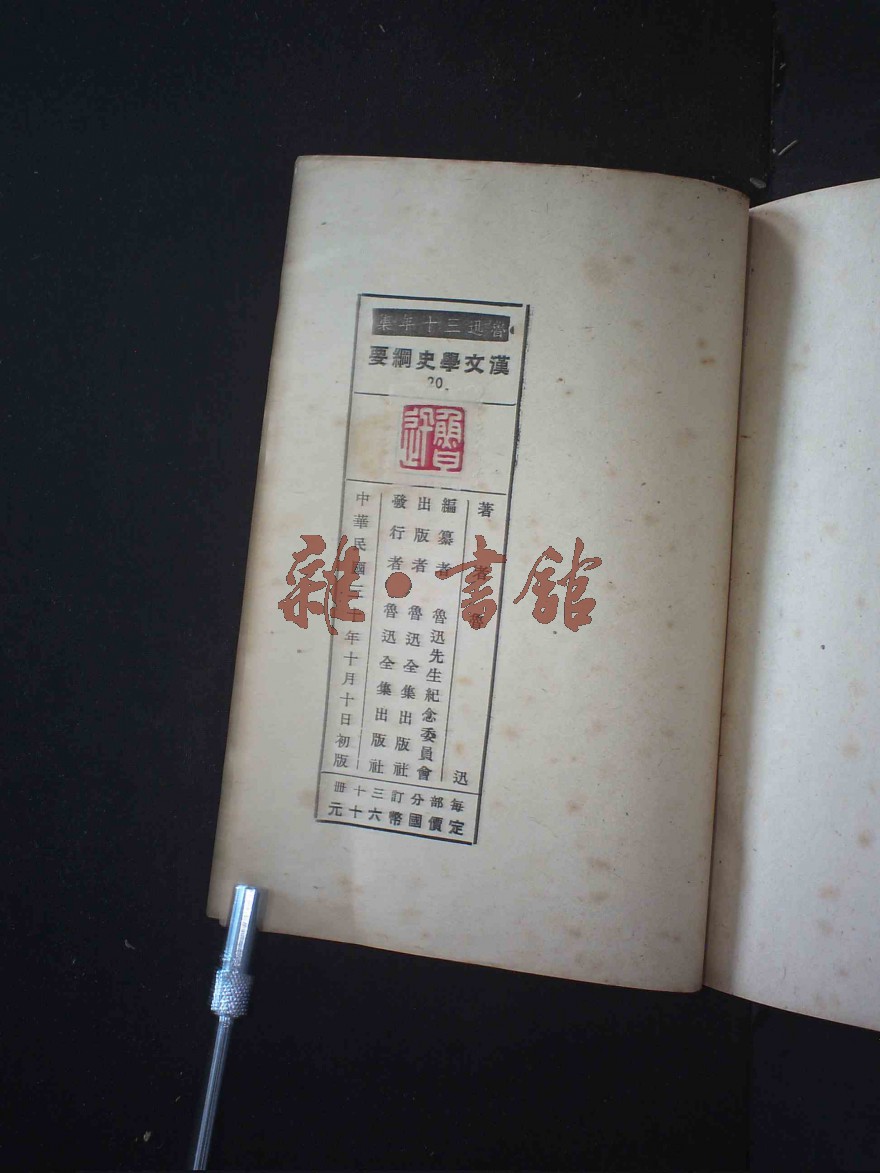 魯迅三十年集
漢文學史綱要
20.
魯迅
著者 魯迅
編纂者 魯迅先生紀念委員會
出版者 魯迅全集出版社
發行者 魯迅全集出版社
中華民國三十年十月十日初版
每部分訂三十冊
定價國幣六十元
雜·書館